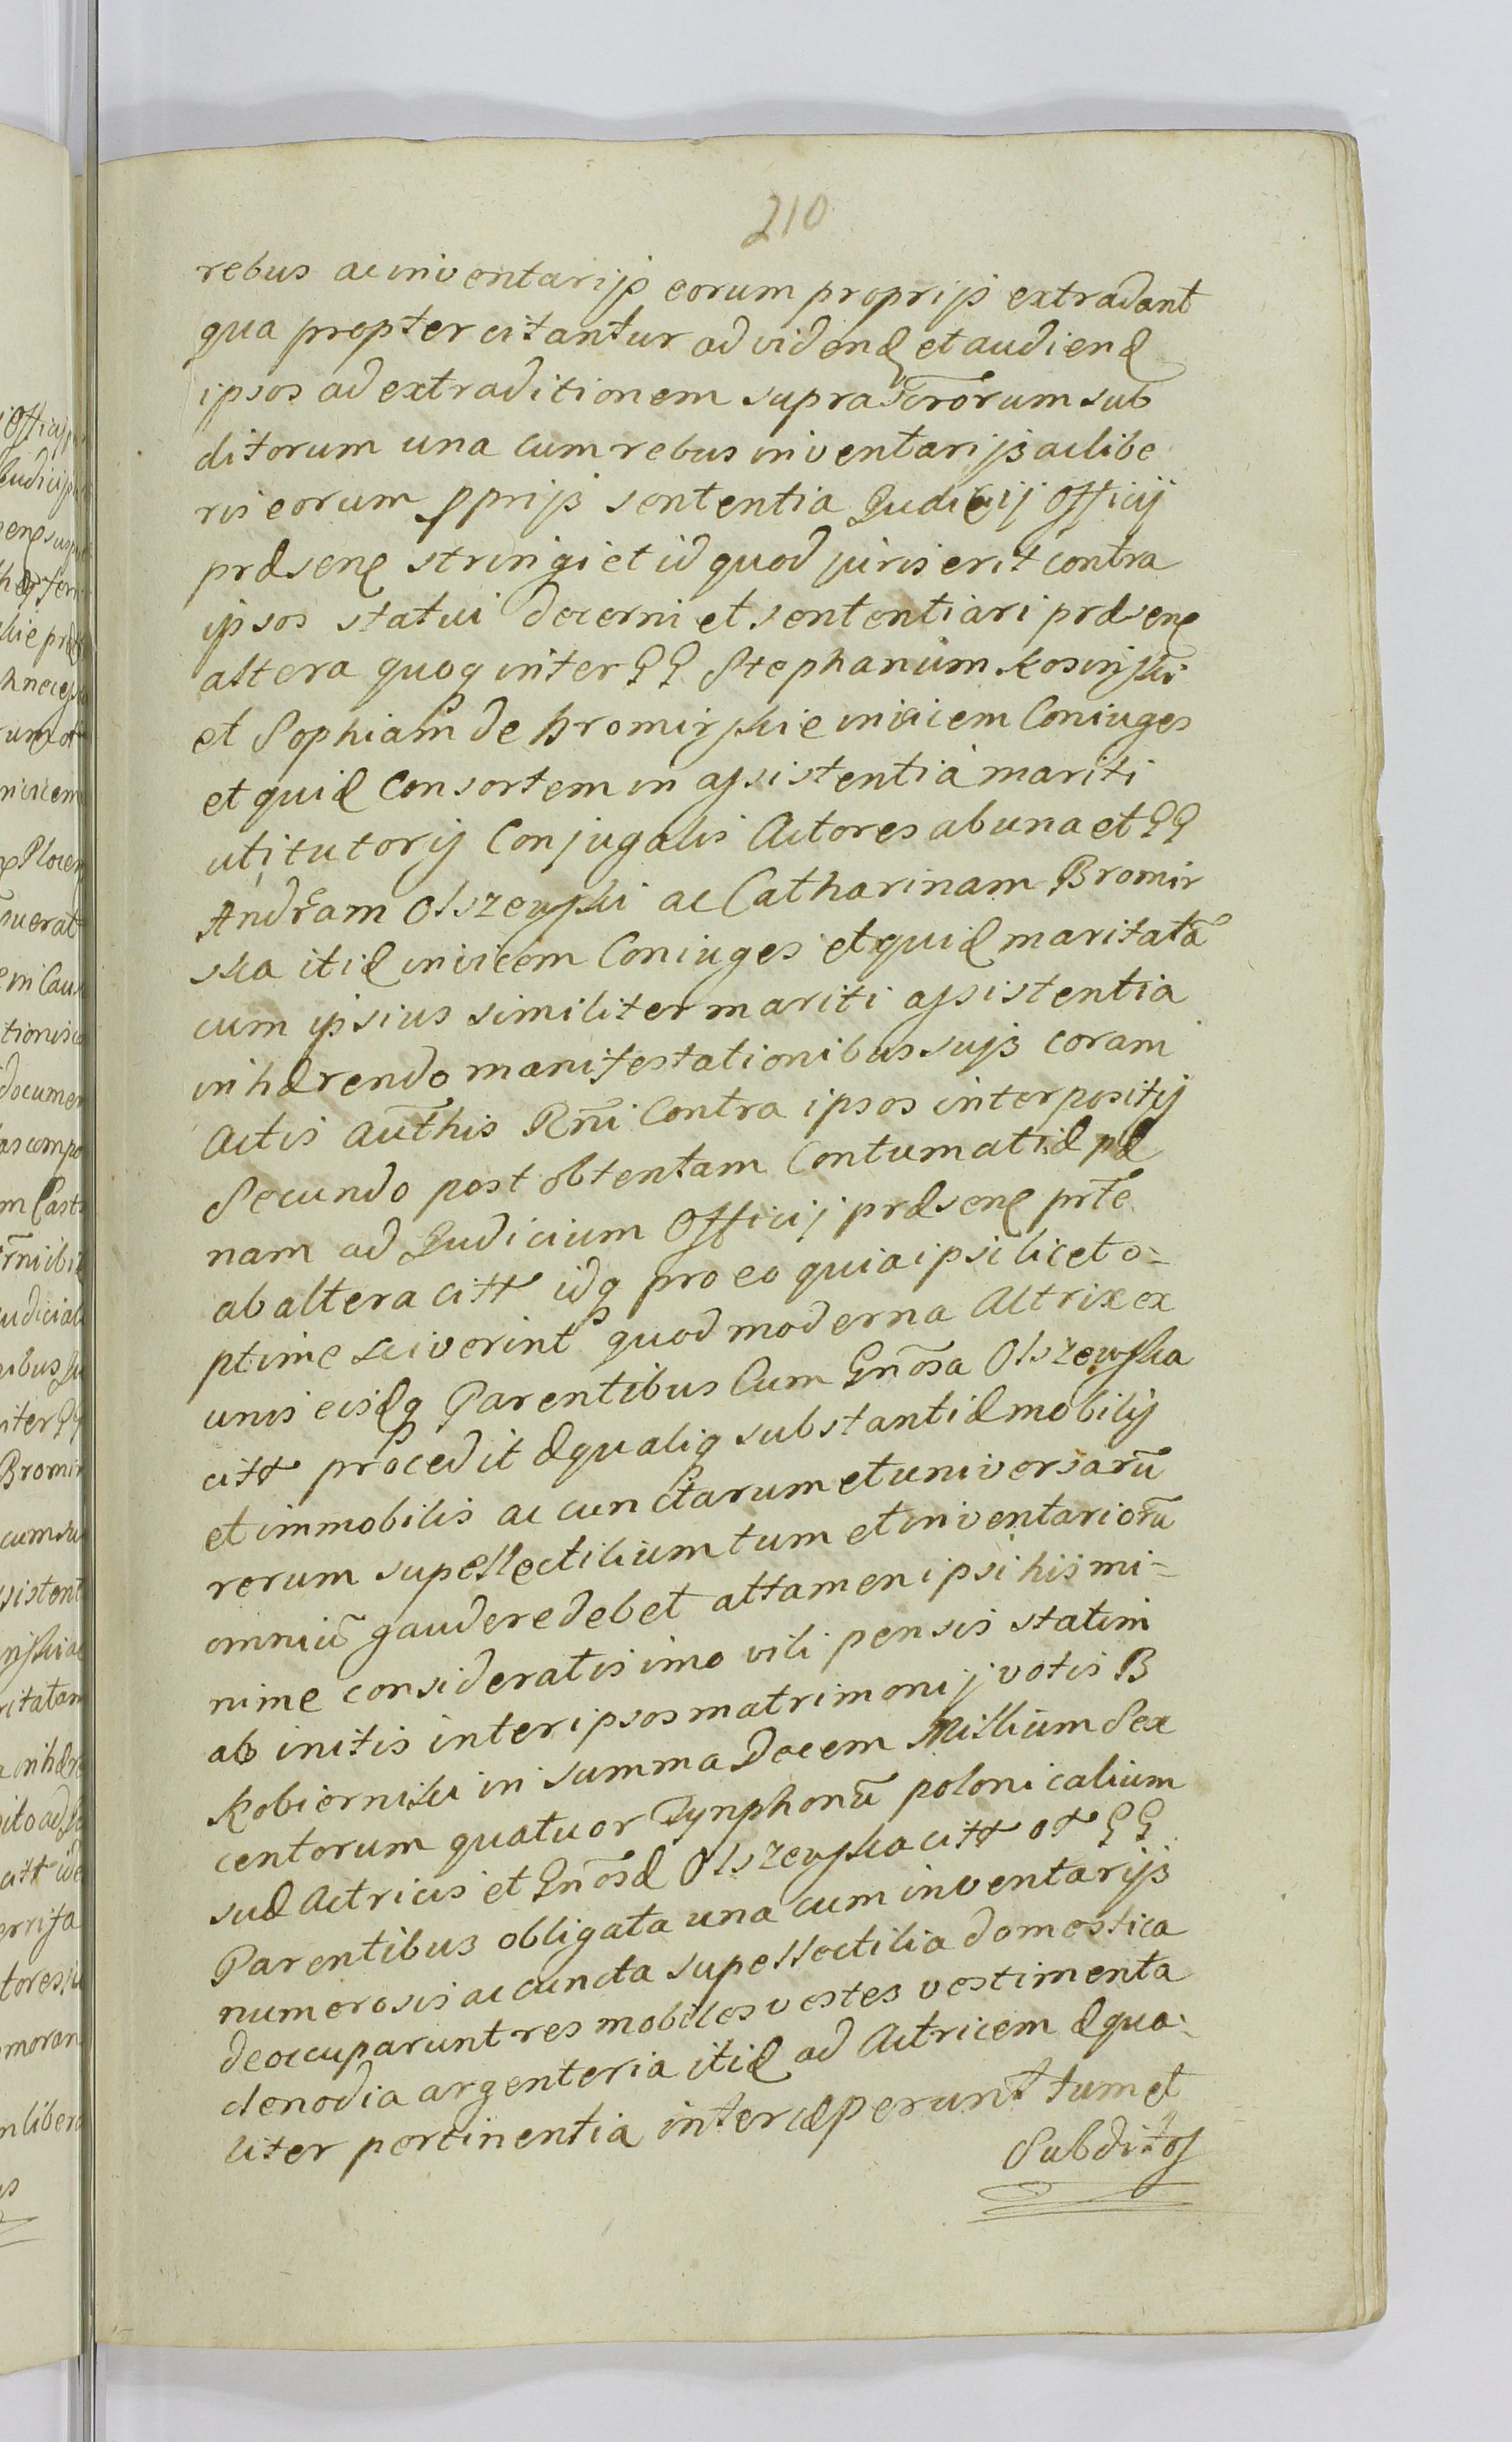 210
rebus ac inventarijs eorum proprijs extradant
qua propter citantur ad videnḍ et audienḍ
ipsos ad extraditionem supra Scrorum sub
ditorum una cum rebus inventarijs ac libe
ris eorum pprijs sententia Judicij Officij
præsenꝭ stringi et id quod juris erit contra
ipsos statui decerni et sententiari præsenꝭ
altera quoq inter GG Stephanum Kosinski
et Sophiam de Bromirskie invicem Coniuges
et quidꝭ Consortem in assistentia mariti
uti tutorij Conjugalis Actores ab una et GG
Andream Olszewski ac Catharinam Bromir
ska itidꝭ invicem Coniuges et quidꝭ maritatā
cum ipsius similiter mariti assistentia
inhærendo manifestationibus sujs coram
Actis authis Rñi Contra ipsos interpositis
Secundo post obtentam Contumatiæ pæ
nam ad Judicium Officij præsenꝭ prte
ab altera citt idq pro eo quia ipsi licet o=
ptime sciverint quod moderna Actrix ex
unis eisdꝭq Parentibus Cum Gnōsa Olszewska
citt procedit æqualiq substantiæ mobilis
et immobilis ac cunctarum et universarū
rerum supellectilium tum et inventariorū
omniū gaudere debet attamen ipsi his mi=
nime consideratis imo vili pensis statim
ab initis inter ipsos matrimonij votis B
Kobierniki in summa Decem Millium Sex
centorum quatuor Tynphonū polonicalium
suæ Actricis et Gnōsæ Olszewska citt ot GG
Parentibus obligata una cum inventarijs
numerosis ac cuncta supellectilia domestica
deoccuparunt res mobiles vestes vestimenta
clenodia argenteria itidꝭ ad Actricem æqua=
liter pertinentia intercæperunt tum et
Subditos